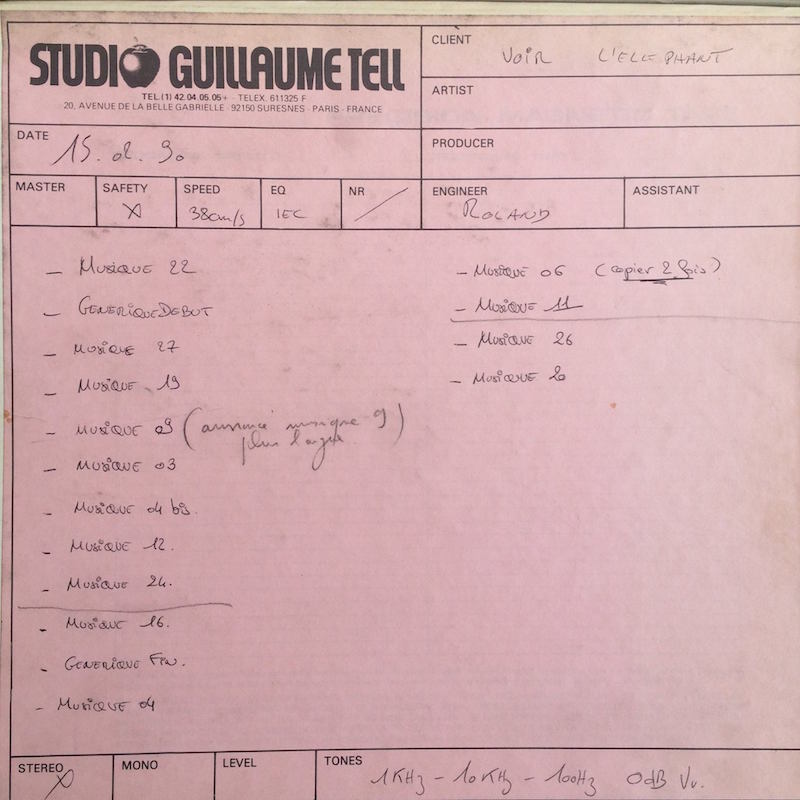 STUDIO GUILLAUME TELL
TEL.(1) 42.04.05.05+ - TELEX. 611325 F
20, AVENUE DE LA BELLE GABRIELLE - 92150 SURESNES - PARIS - FRANCE
CLIENT VOIR L'ELEPHANT
ARTIST
DATE 15. 01. 90
PRODUCER
MASTER
SAFETY X
SPEED 38cm/s
EQ IEC
NR /
ENGINEER ROLAND
ASSISTANT
- MUSIQUE 22
- GENERIQUE DEBUT
- MUSIQUE 27
- MUSIQUE 19
- MUSIQUE 09 (annoncé musique 9
plus large)
- MUSIQUE 03
- MUSIQUE 04 bis.
- MUSIQUE 12.
- MUSIQUE 24.
- MUSIQUE 16.
- GENERIQUE FIN.
- MUSIQUE 04
- MUSIQUE 06 (copier 2 fois)
- MUSIQUE 11
- MUSIQUE 26
- MUSIQUE 20
STEREO X
MONO
LEVEL
TONES 1KHz - 10KHz - 100Hz 0dB Vu.